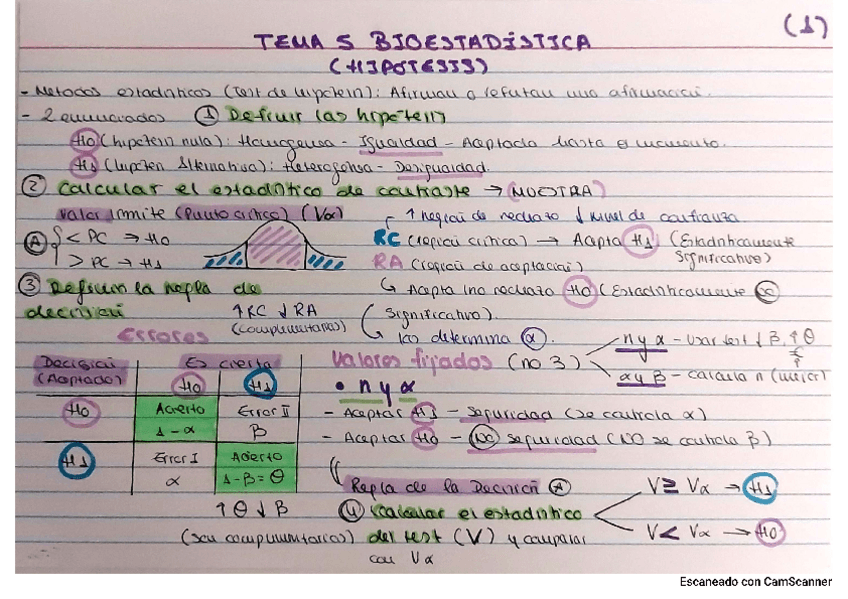 (1)
TEMA 5 BIOESTADÍSTICA
(HIPÓTESIS)
- Métodos estadísticos (Test de hipótesis): Afirman o refutan una afirmación.
- 2 enunciados ① Definir las hipótesis
H0 (hipótesis nula): Homogénea - Igualdad - Aceptada hasta el momento.
H1 (hipótesis Alternativa): Heterogénea - Desigualdad.
② Calcular el estadístico de contraste → (MUESTRA)
Valor límite (Punto crítico) (Vα)
↑ región de rechazo ↓ nivel de confianza
A < PC → H0
> PC → H1
RC (región crítica) → Acepta H1 (Estadísticamente significativo)
RA (región de aceptación)
↳ Acepta (no rechazo) H0 (Estadísticamente NO
significativo).
③ Definir la regla de
decisión
↑RC ↓RA
(complementarios)
Los determina α.
Errores
Decisión
(Aceptado)
Es cierta
H0
H1
H0
Acierto
1-α
Error II
β
H1
Error I
α
Acierto
1-β=θ
↑θ ↓β
(son complementarios)
Valores fijados (no 3)
n y α - Usar test ↓β, ↑θ
α y β - calcula n (mejor)
• n y α
- Aceptar H1 - Seguridad (se controla α)
- Aceptar H0 - NO seguridad (NO se controla β)
Regla de la Decisión A
④ Calcular el estadístico
del test (V) y comparar
con Vα
V ≥ Vα → H1
V < Vα → H0
Escaneado con CamScanner